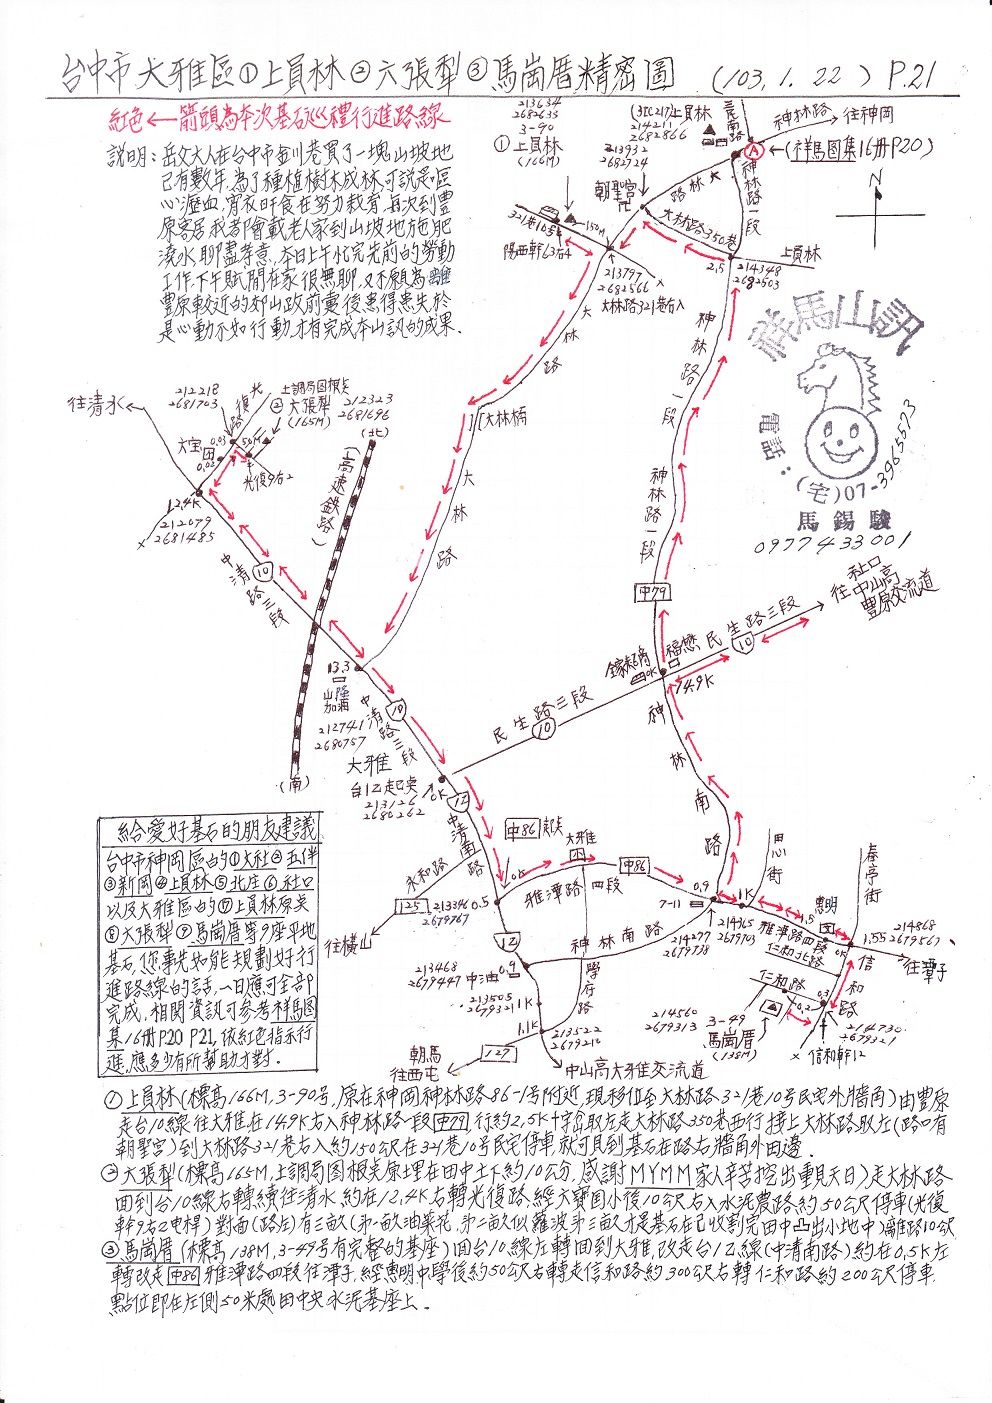 台中市大雅區①上員林②六張犁③馬崗厝精密圖 (103.1.22) P.21
紅色←箭頭為本次基石巡禮行進路線
說明：岳父大人在台中市金川巷買了一塊山坡地
已有數年,為了種植樹木成林,可說是嘔
心瀝血,宵衣旰食在努力栽者,每次到豐
原客居,我都會載老人家到山坡地施肥
澆水,聊盡孝意.本日上午忙完先前的勞動
工作,下午賦閒在家很無聊,又不願為離
豐原較近的郊山政前臺後患得患失,於
是心動不如行動才有完成本山訊的成果.
213634
2682633
3-90
①上員林
(166M)
(3JC217)上員林
214211
2682866
213932
2682724
三民南路
神林路
往神岡
Ⓐ←(祥馬圖集16冊P20)
N
朝聖宮
大林路
神林路一段
大林路350巷
321巷10号
150M
陽西幹63右4
213797
2682566
大林路321巷右入
2.5
214348
2682503
上員林
大林路
大林橋
神林路一段
祥馬山訊
電話：(宅)07-3965573
馬錫駿
0977433001
往清水
212218
2681703
復光路
土調局圖根點
②大張犁
(165M)
212323
2681696
(北)
大宝国
0.03
0.02
50M
光復9右2
12.4K
212079
2681485
中清路三段
10
(高速鉄路)
(南)
大林路
神林路一段
中79
往社口
中山高
豐原交流道
民生路三段
10
福懋
0K
14.9K
13.3
山隆加油
212741
2680757
中清路三段
10
民生路三段
10
大雅
台12起点
213126
2680262
0K
12
中清南路
神林南路
中86起点
大雅国
中86
0K
雅潭路四段
0.9
7-11
1K
田心街
春亭街
惠明
1.5
雅潭路四段
仁和北路
1.55
214868
2679567
往潭子
永和路
125
往橫山
213396
2679767
0.5
神林南路
214277
2679738
214365
2679743
12
213468
2679447
中油
0.9
213505
2679321
1K
學府路
1.1K
213522
2679212
127
朝馬
往西屯
中山高大雅交流道
仁和路
信和路
0K
0.3
0.2
214560
2679313
3-49
馬崗厝
(138M)
214730
2679321
信和幹12
給愛好基石的朋友建議
台中市神岡區的①大社②五伴
③新岡④上員林⑤北庄⑥社口
以及大雅區的⑦上員林原点
⑧大張犁⑨馬崗厝等9座平地
基石,您事先如能規劃好行
進路線的話,一日應可全部
完成,相関資訊可參考祥馬圖
集16冊P20 P21,依紅色指示行
進,應多少有所幫助才對.
①上員林(標高166M,3-90号,原在神岡神林路86-1号附近,現移位至大林路321巷10号民宅外牆角)由豐原
走台10線往大雅在14.9K右入神林路一段中79,行約2.5K十字岔取左走大林路350巷西行接上大林路取左(路口有
朝聖宮)到大林路321巷右入約150公尺在321巷10号民宅停車,就可見到基石在路右牆角外田邊.
②大張犁(標高165M,土調局圖根点原埋在田中土下約10公分,感謝MYMM家人辛苦挖出重見天日)走大林路
回到台10線右轉續往清水約在12.4K右轉光復路,經大寶国小後10公尺右入水泥農路約50公尺停車(光復
幹9右2电桿)對面(路左)有三畝(第一畝油菜花,第二畝似蘿波,第三畝才是基石在已收割完田中凸出小地中)離路10公尺
③馬崗厝(標高138M,3-49号有完整的基座)回台10線左轉回到大雅,改走台12線(中清南路)約在0.5K左
轉改走中86雅潭路四段往潭子,經惠明中學後約50公尺右轉走信和路約300公尺右轉仁和路約200公尺停車.
點位即在左側50米處田中央水泥基座上.